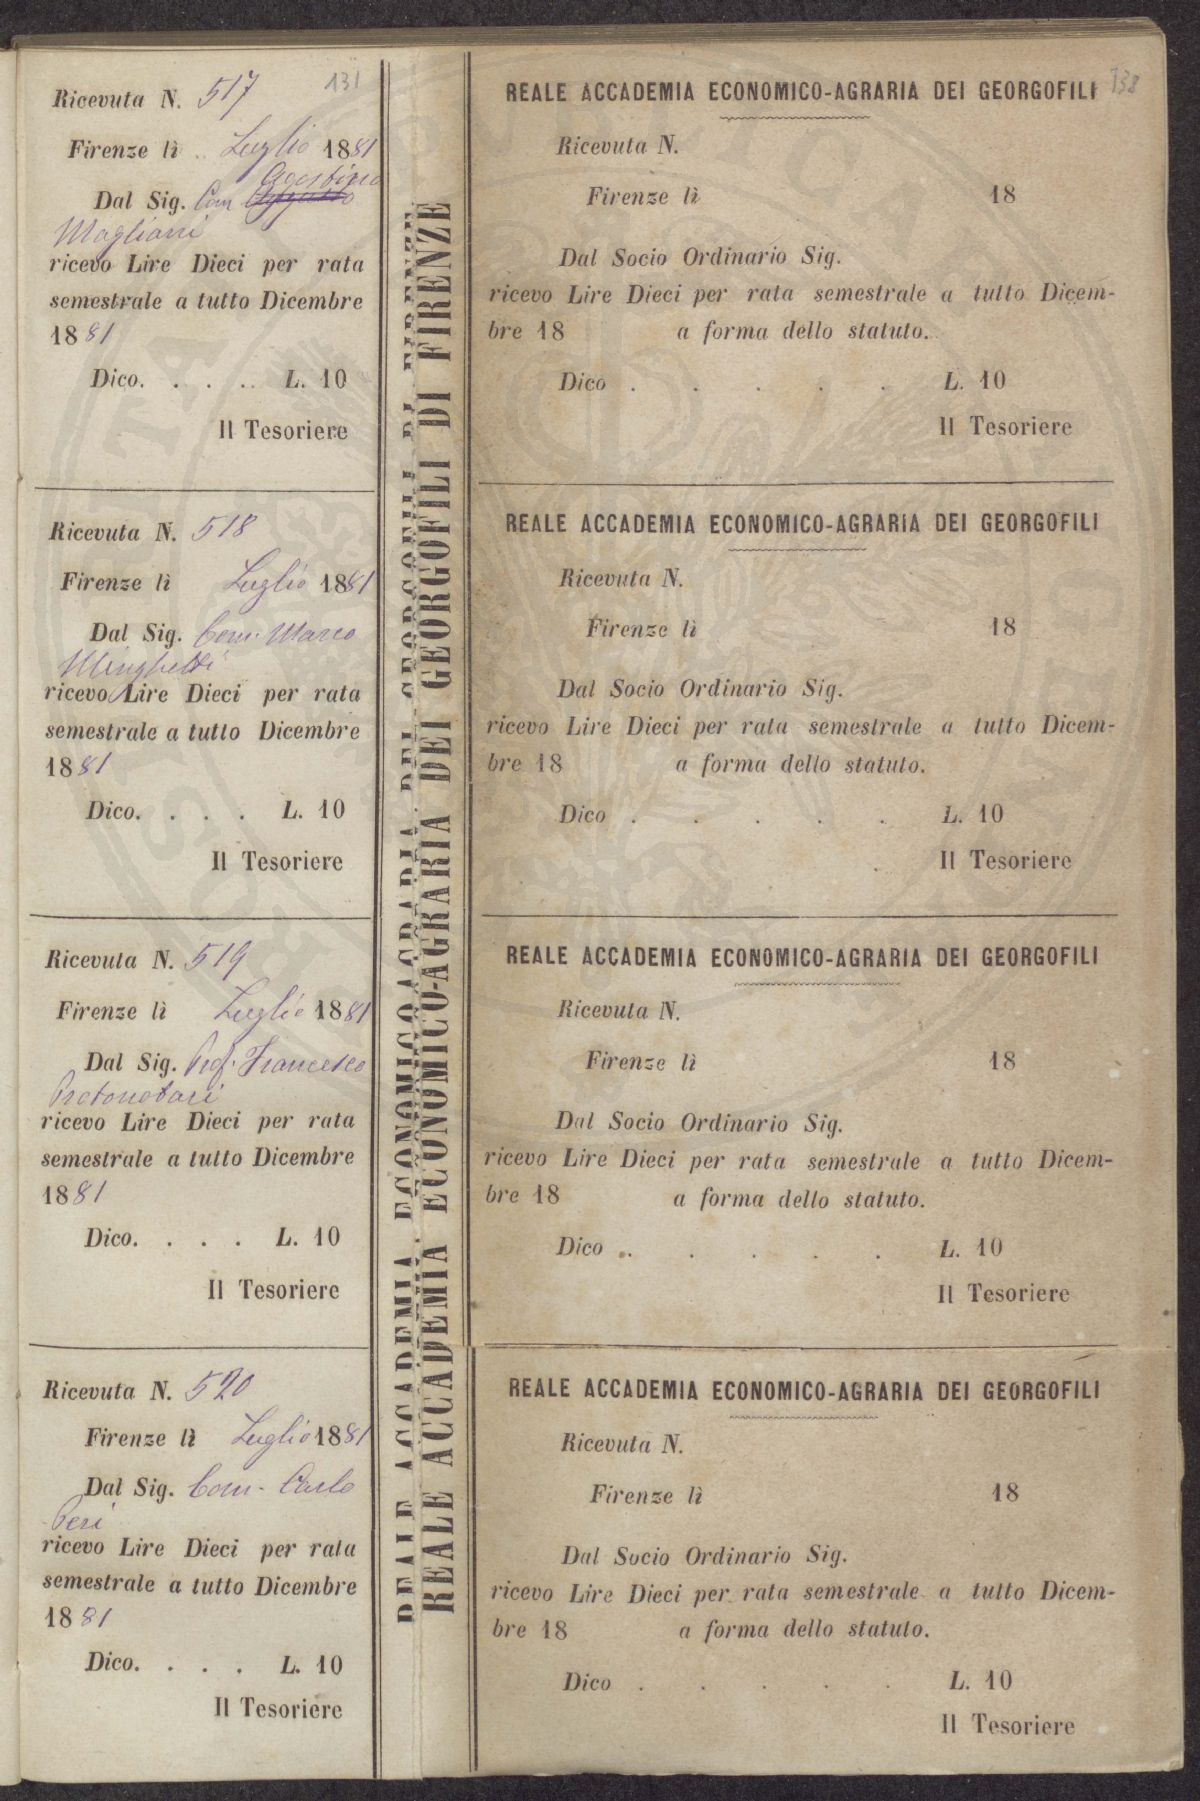 131
Ricevuta N. 517
Firenze lì Luglio 1881
Agostino
Dal Sig. Com
Magliani
ricevo Lire Dieci per rata
semestrale a tutto Dicembre
1881
Dico. . . . . L. 10
Il Tesoriere
Ricevuta N. 518
Firenze lì Luglio 1881
Dal Sig. Com. Marco
Minghetti
ricevo Lire Dieci per rata
semestrale a tutto Dicembre
1881
Dico. . . . L. 10
Il Tesoriere
Ricevuta N. 519
Firenze lì Luglio 1881
Dal Sig. Prof. Francesco
Protonotari
ricevo Lire Dieci per rata
semestrale a tutto Dicembre
1881
Dico. . . . L. 10
Il Tesoriere
Ricevuta N. 520
Firenze lì Luglio 1881
Dal Sig. Com. Carlo
Peri
ricevo Lire Dieci per rata
semestrale a tutto Dicembre
1881
Dico. . . . L. 10
Il Tesoriere
REALE ACCADEMIA ECONOMICO-AGRARIA DEI GEORGOFILI DI FIRENZE
REALE ACCADEMIA ECONOMICO-AGRARIA DEI GEORGOFILI DI FIRENZE
138
REALE ACCADEMIA ECONOMICO-AGRARIA DEI GEORGOFILI
Ricevuta N.
Firenze lì 18
Dal Socio Ordinario Sig.
ricevo Lire Dieci per rata semestrale a tutto Dicem-
bre 18 a forma dello statuto.
Dico . . . . . L. 10
Il Tesoriere
REALE ACCADEMIA ECONOMICO-AGRARIA DEI GEORGOFILI
Ricevuta N.
Firenze lì 18
Dal Socio Ordinario Sig.
ricevo Lire Dieci per rata semestrale a tutto Dicem-
bre 18 a forma dello statuto.
Dico . . . . . L. 10
Il Tesoriere
REALE ACCADEMIA ECONOMICO-AGRARIA DEI GEORGOFILI
Ricevuta N.
Firenze lì 18
Dal Socio Ordinario Sig.
ricevo Lire Dieci per rata semestrale a tutto Dicem-
bre 18 a forma dello statuto.
Dico . . . . . L. 10
Il Tesoriere
REALE ACCADEMIA ECONOMICO-AGRARIA DEI GEORGOFILI
Ricevuta N.
Firenze lì 18
Dal Socio Ordinario Sig.
ricevo Lire Dieci per rata semestrale a tutto Dicem-
bre 18 a forma dello statuto.
Dico . . . . . L. 10
Il Tesoriere